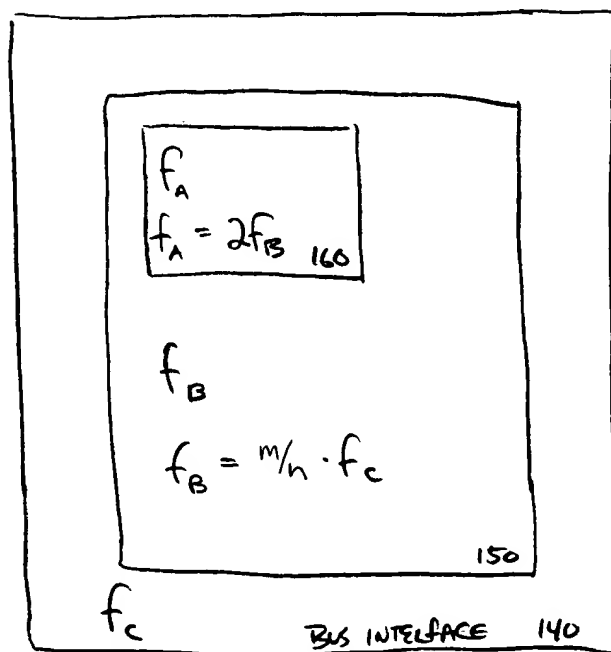 f_A
f_A = 2f_B 160
f_B
f_B = m/n · f_c
150
f_c
BUS INTERFACE 140